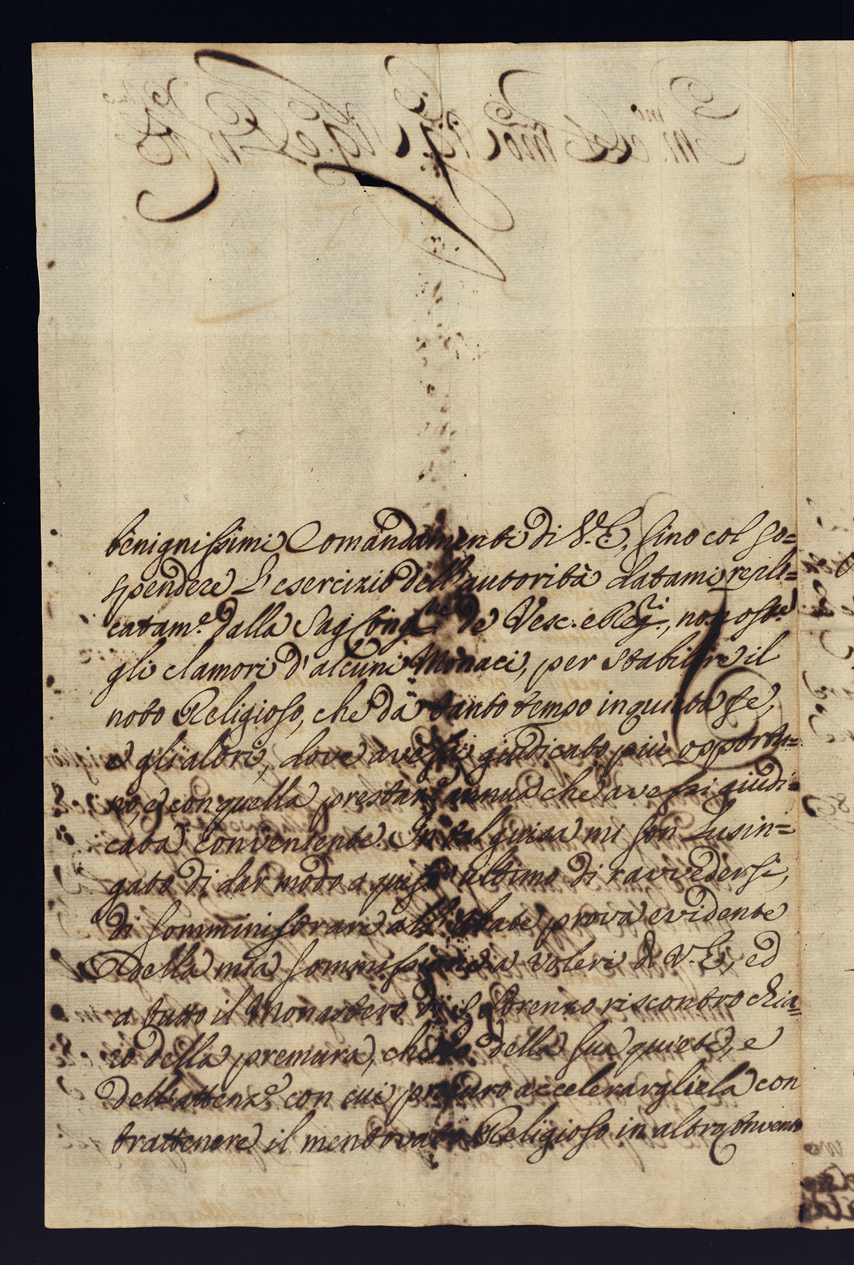 benignissimi Comandamenti di V. E., sino col so=
spendere L'esercizio dell'autorità datami repli=
catam.e dalla Sag. Cong.ne de' Vesc. e Reg.ri, non ost.e
gli clamori d'alcuni Monaci, per stabilire il
noto Religioso, che da tanto tempo inquieta se,
e gli altri, dove avessi giudicato più opportu=
no, e con quella prestan annua che avessi giudi=
cata conveniente. In tal guisa mi son Lusin=
gato di dar modo a quest' ultimo di ravvedersi,
di somministrare all' Abate prova evidente
della mia sommissione a voleri di V. E., ed
a tutto il Monastero di S. Lorenzo riscontro chia=
ro della premura, che ho della sua quiete, e
dell'attenz.e con cui procuro accelerargliela con
trattenere il mentovato Religioso in altro